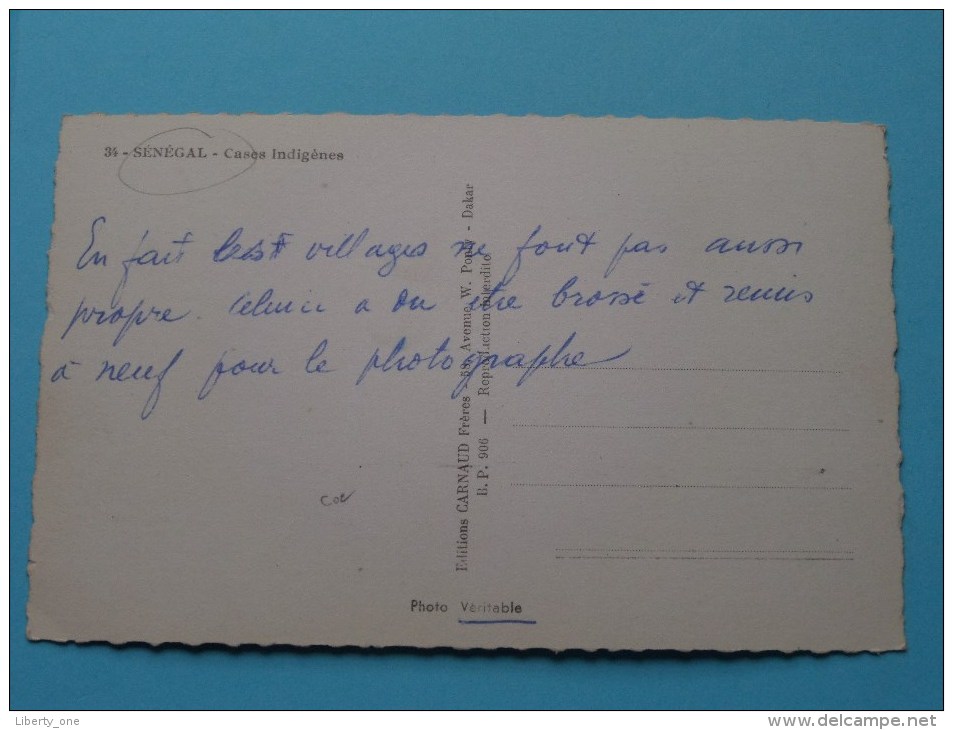 34 - SÉNÉGAL - Cases Indigènes
En fait les villages ne font pas aussi
propre. Celui ci a du être brossé et remis
à neuf pour le photographe
Editions CARNAUD Frères - 58, Avenue W. Ponty - Dakar
B. P. 906 — Reproduction interdite
Photo Véritable
Liberty_one
www.delcampe.net